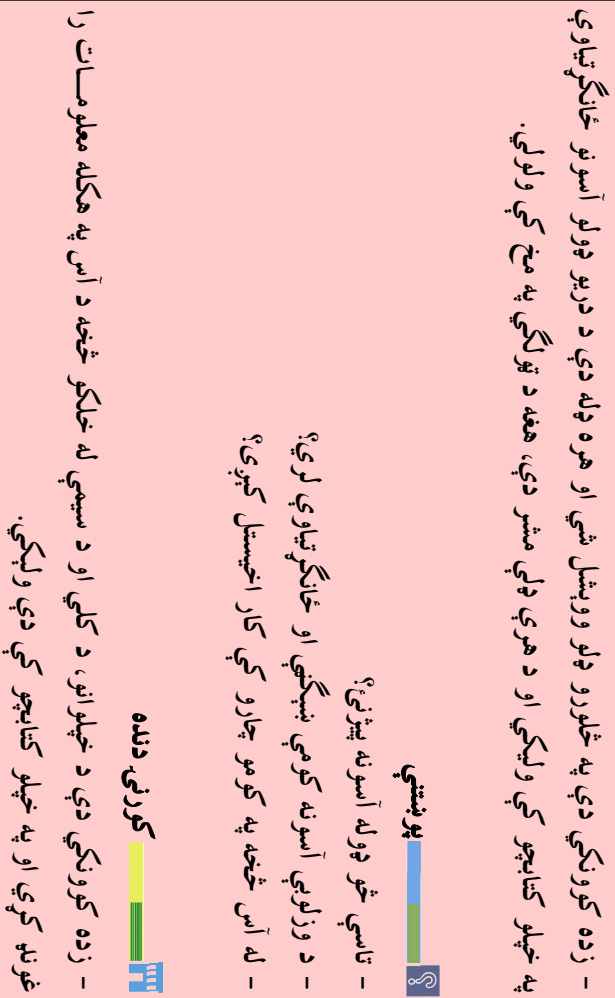 - زده کوونکي دې په څلورو ډلو وویشل شي او هره ډله دې د دریو ډولو آسونو ځانګړتیاوې
په خپلو کتابچو کې ولیکي او د هرې ډلې مشر دې، هغه د ټولګي په مخ کې ولولي.
پوښتنې
- تاسې څو ډوله آسونه پیژنئ؟
- د وزلوبې آسونه کومې نښګڼې او ځانګړتیاوې لري؟
- له آس څخه په کومو چارو کې کار اخیستل کېږي؟
کورنۍ دنده
- زده کوونکي دې د خپلوانو، د کلي او د سیمې له خلکو څخه د آس په هکله معلومــات را
غونډ کړي او په خپلو کتابچو کې دې ولیکي.